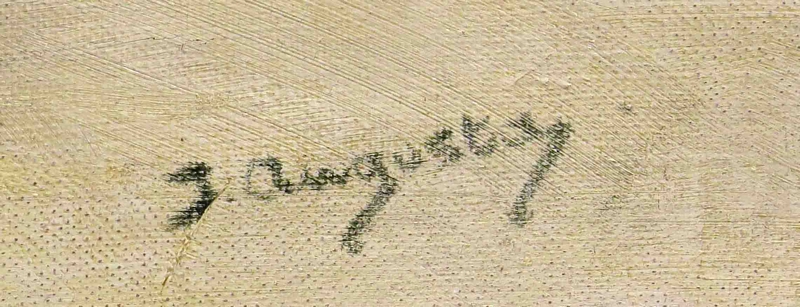 J. Augusty